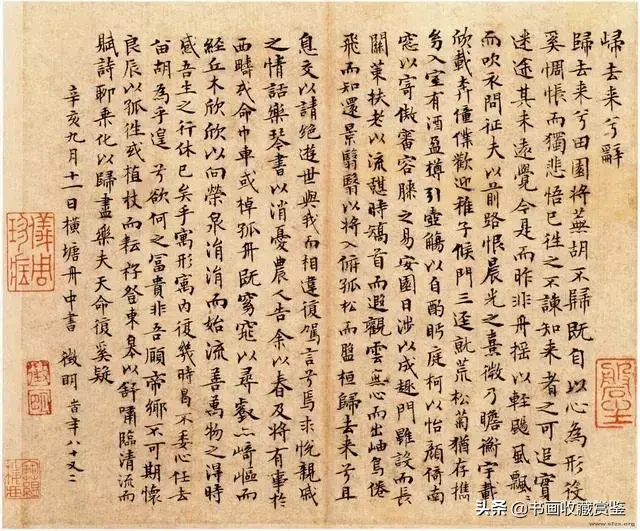 歸去来兮辭
歸去来兮田園將蕪胡不歸既自以心為形役
奚惆悵而獨悲悟已往之不諫知来者之可追實
迷途其未遠覺今是而昨非舟摇以輕颺風飄
而吹衣問征夫以前路恨晨光之熹微乃瞻衡宇載
欣載奔僮僕歡迎稚子候門三逕就荒松菊猶存攜
幼入室有酒盈樽引壺觴以自酌眄庭柯以怡顏倚南
窓以寄傲審容膝之易安園日涉以成趣門雖設而長
關策扶老以流憇時矯首而遐觀雲無心而出岫鳥倦
飛而知還景翳翳以將入撫孤松而盤桓歸去来兮且
息交以請絶遊世與我而相違復駕言兮焉求悅親戚
之情話樂琴書以消憂農人告余以春及將有事於
西疇或命巾車或棹孤舟既窈窕以尋壑亦崎嶇而
經丘木欣欣以向榮泉涓涓而始流善萬物之得時
感吾生之行休已矣乎寓形寓内復幾時曷不委心任去
留胡為乎遑遑兮欲何之富貴非吾願帝鄉不可期懷
良辰以孤往或植杖而耘耔登東皋以舒嘯臨清流而
賦詩聊乘化以歸盡樂夫天命復奚疑
辛亥九月十一日橫塘舟中書 徵明 時年八十又二
頭条 @书画收藏赏鉴
www.kfzs.org